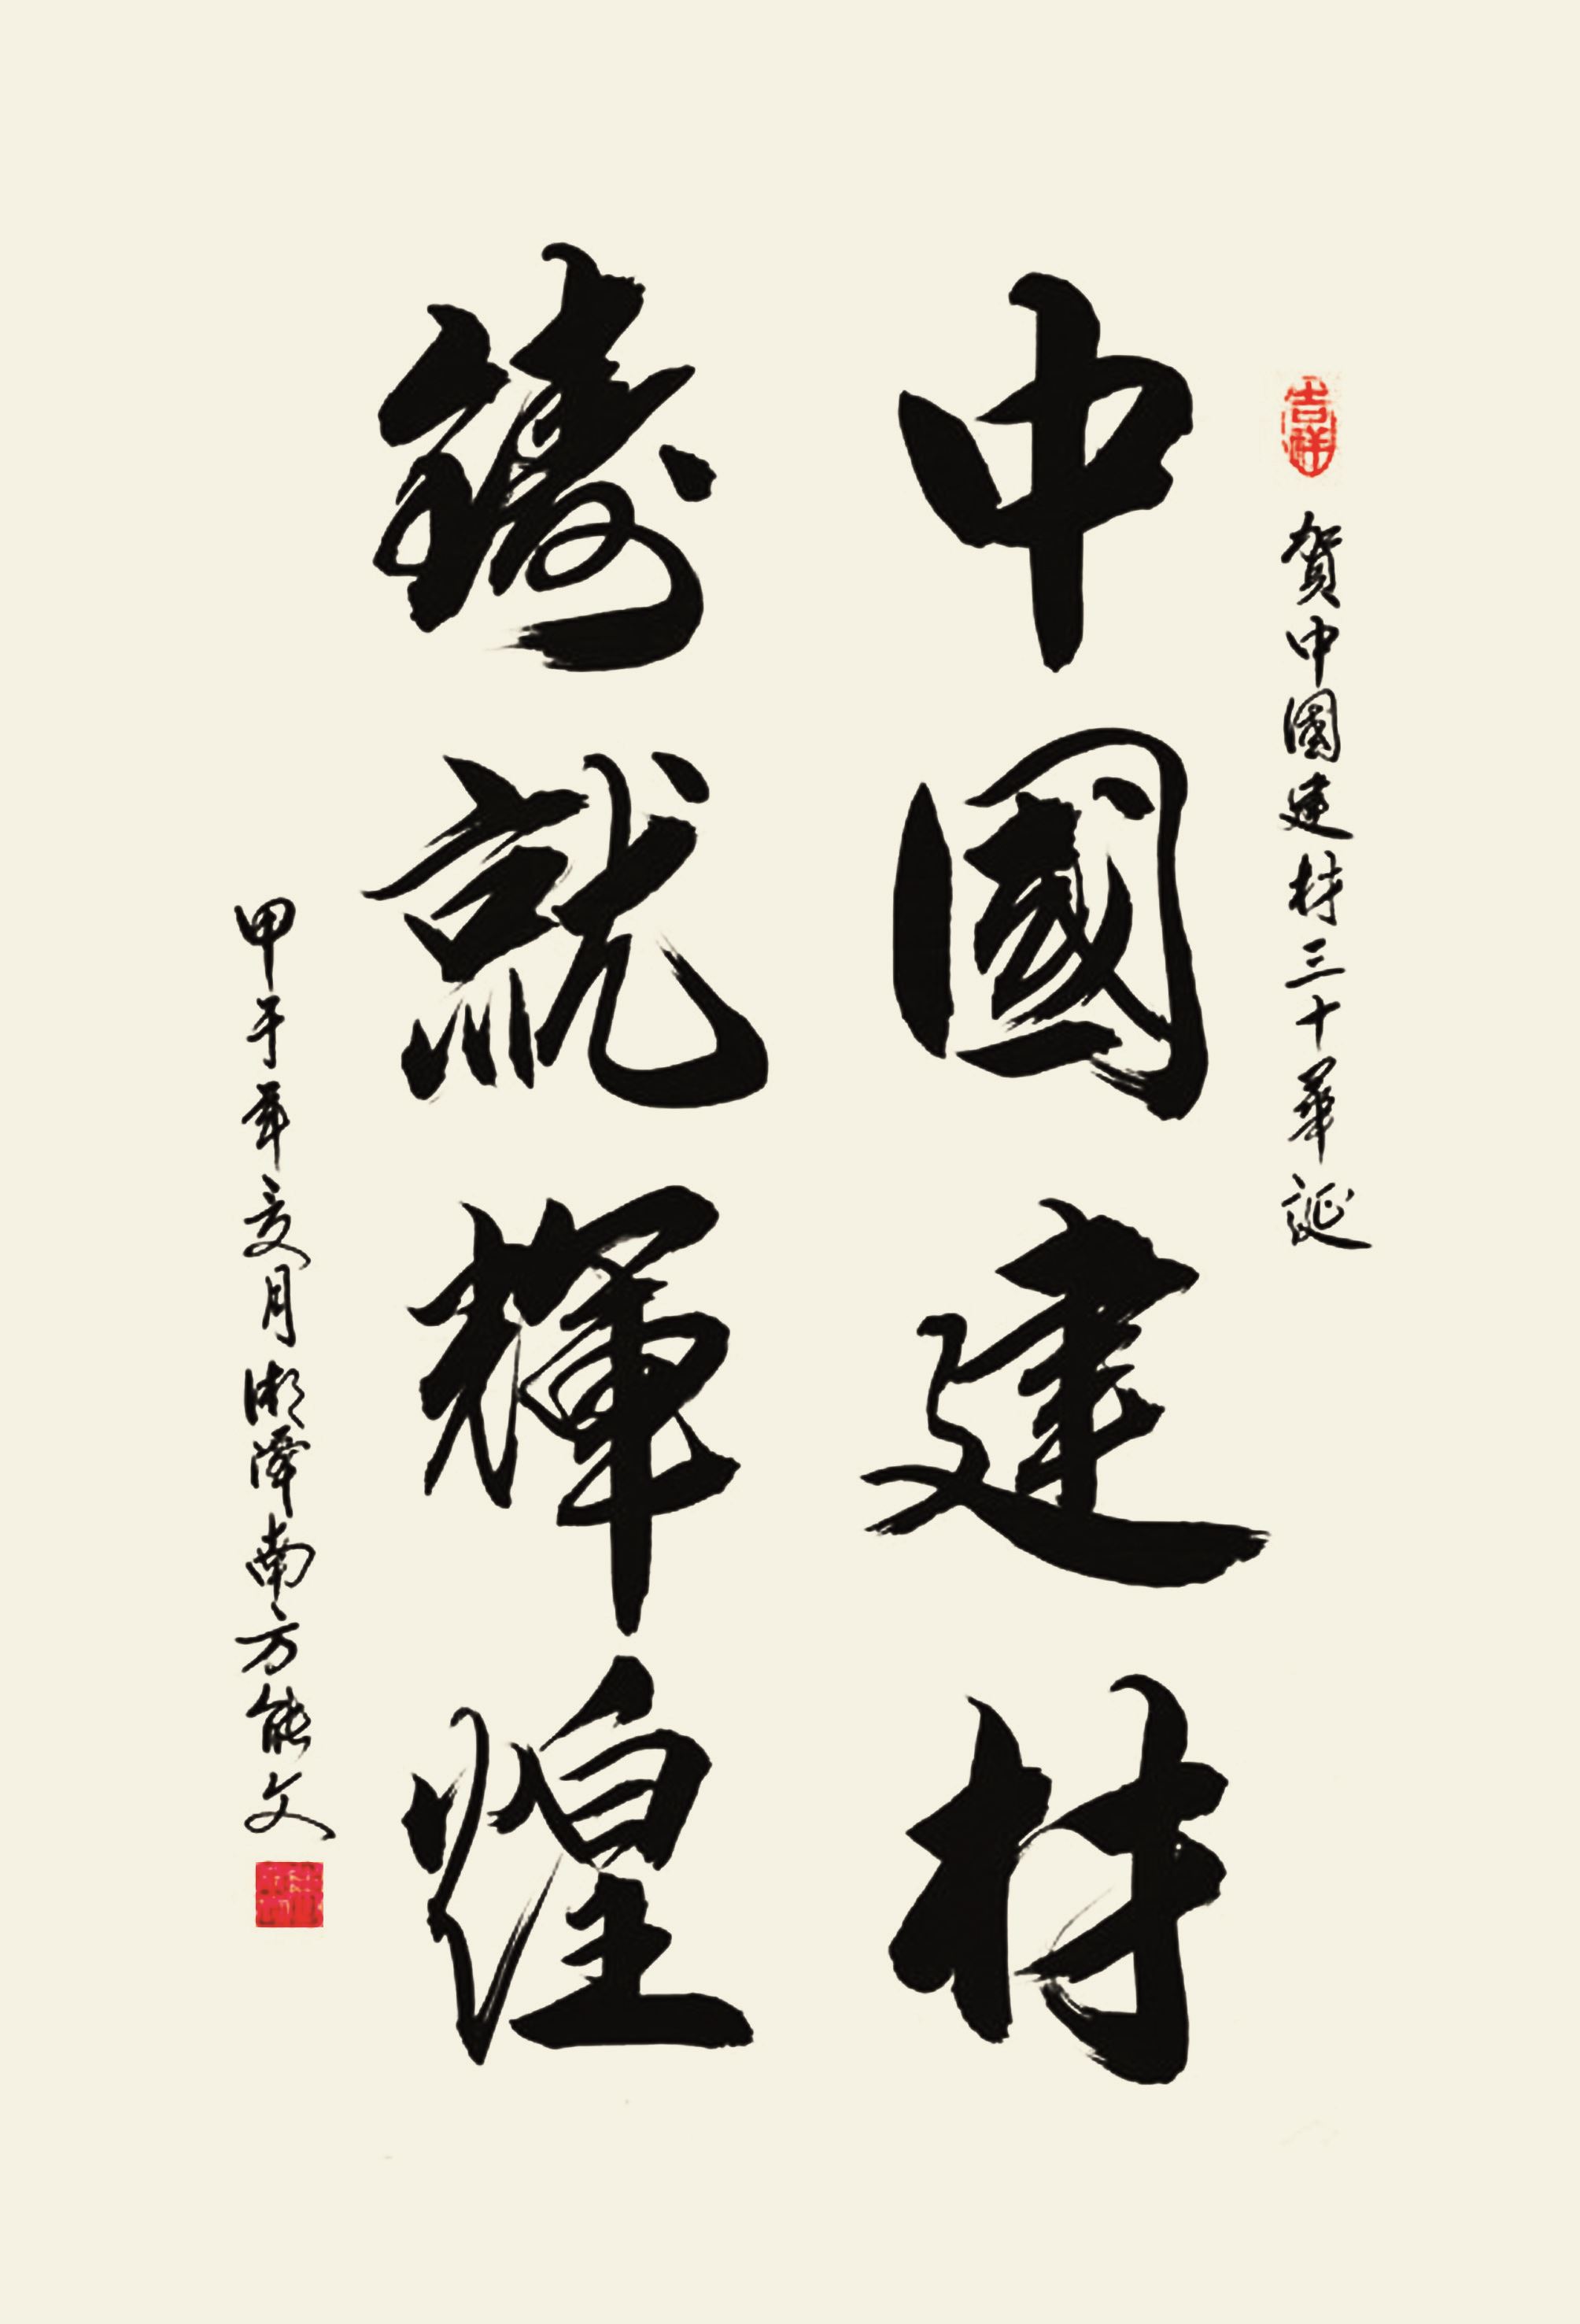 吉祥
賀中國建材三十華誕
中國建材
鑄就輝煌
甲午年夏月湘潭南方熊文